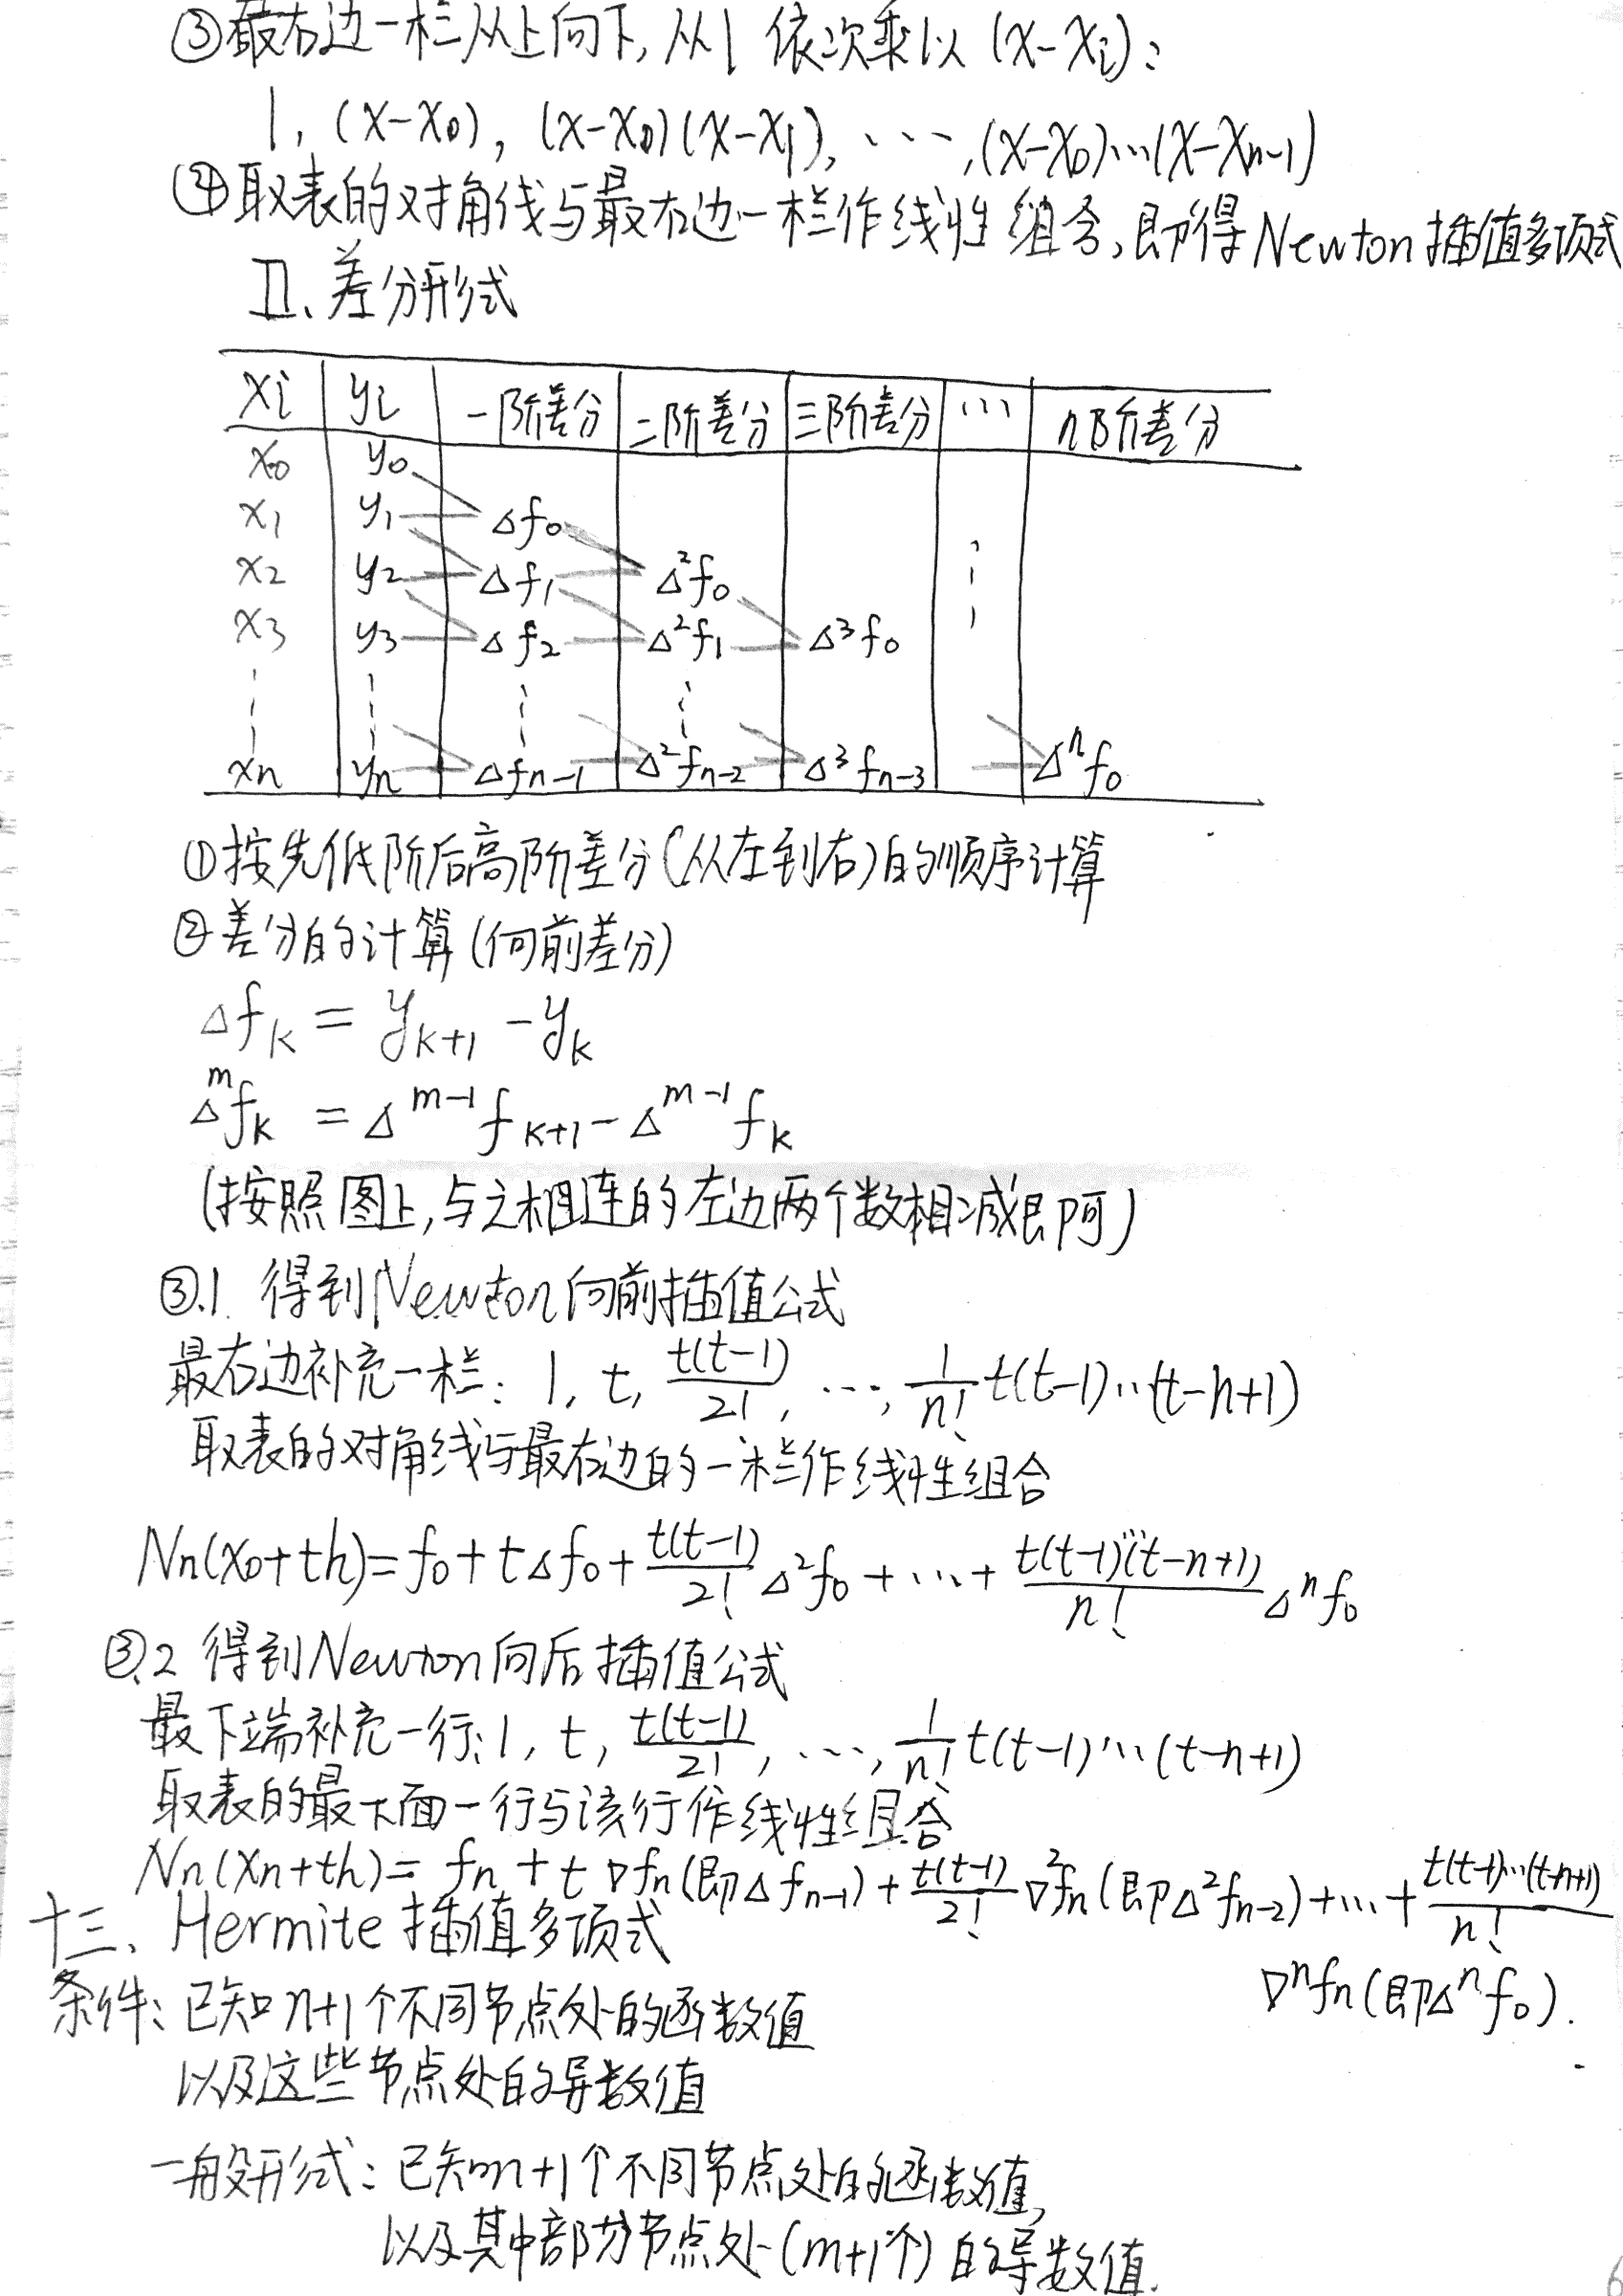 ③最右边一栏从上向下,从1依次乘以(x-xᵢ):
1, (x-x₀), (x-x₀)(x-x₁), ···, (x-x₀)···(x-xₙ₋₁)
④取表的对角线与最右边一栏作线性组合,即得Newton插值多项式
II、差分形式
xᵢ yᵢ 一阶差分 二阶差分 三阶差分 ··· n阶差分
x₀ y₀
x₁ y₁ Δf₀
x₂ y₂ Δf₁ Δ²f₀
x₃ y₃ Δf₂ Δ²f₁ Δ³f₀
⋮ ⋮ ⋮ ⋮ ⋮
xₙ yₙ Δfₙ₋₁ Δ²fₙ₋₂ Δ³fₙ₋₃ Δⁿf₀
①按先低阶后高阶差分(从左到右)的顺序计算
②差分的计算(向前差分)
Δfₖ = yₖ₊₁ - yₖ
Δᵐfₖ = Δᵐ⁻¹fₖ₊₁ - Δᵐ⁻¹fₖ
(按照图上,与之相连的左边两个数相减即可)
③.1 得到Newton向前插值公式
最右边补充一栏: 1, t, t(t-1)/2!, ···, 1/n! t(t-1)···(t-n+1)
取表的对角线与最右边的一栏作线性组合
Nn(x₀+th)=f₀+tΔf₀+t(t-1)/2! Δ²f₀+···+t(t-1)···(t-n+1)/n! Δⁿf₀
③.2 得到Newton向后插值公式
最下端补充一行: 1, t, t(t-1)/2!, ···, 1/n! t(t-1)···(t-n+1)
取表的最下面一行与该行作线性组合
Nn(xₙ+th)= fₙ + t∇fₙ(即Δfₙ₋₁)+t(t-1)/2! ∇²fₙ(即Δ²fₙ₋₂)+···+t(t-1)···(t-n+1)/n!
∇ⁿfₙ(即Δⁿf₀).
十三、Hermite插值多项式
条件: 已知n+1个不同节点处的函数值
以及这些节点处的导数值
一般形式: 已知n+1个不同节点处的函数值,
以及其中部分节点处(m+1个)的导数值.